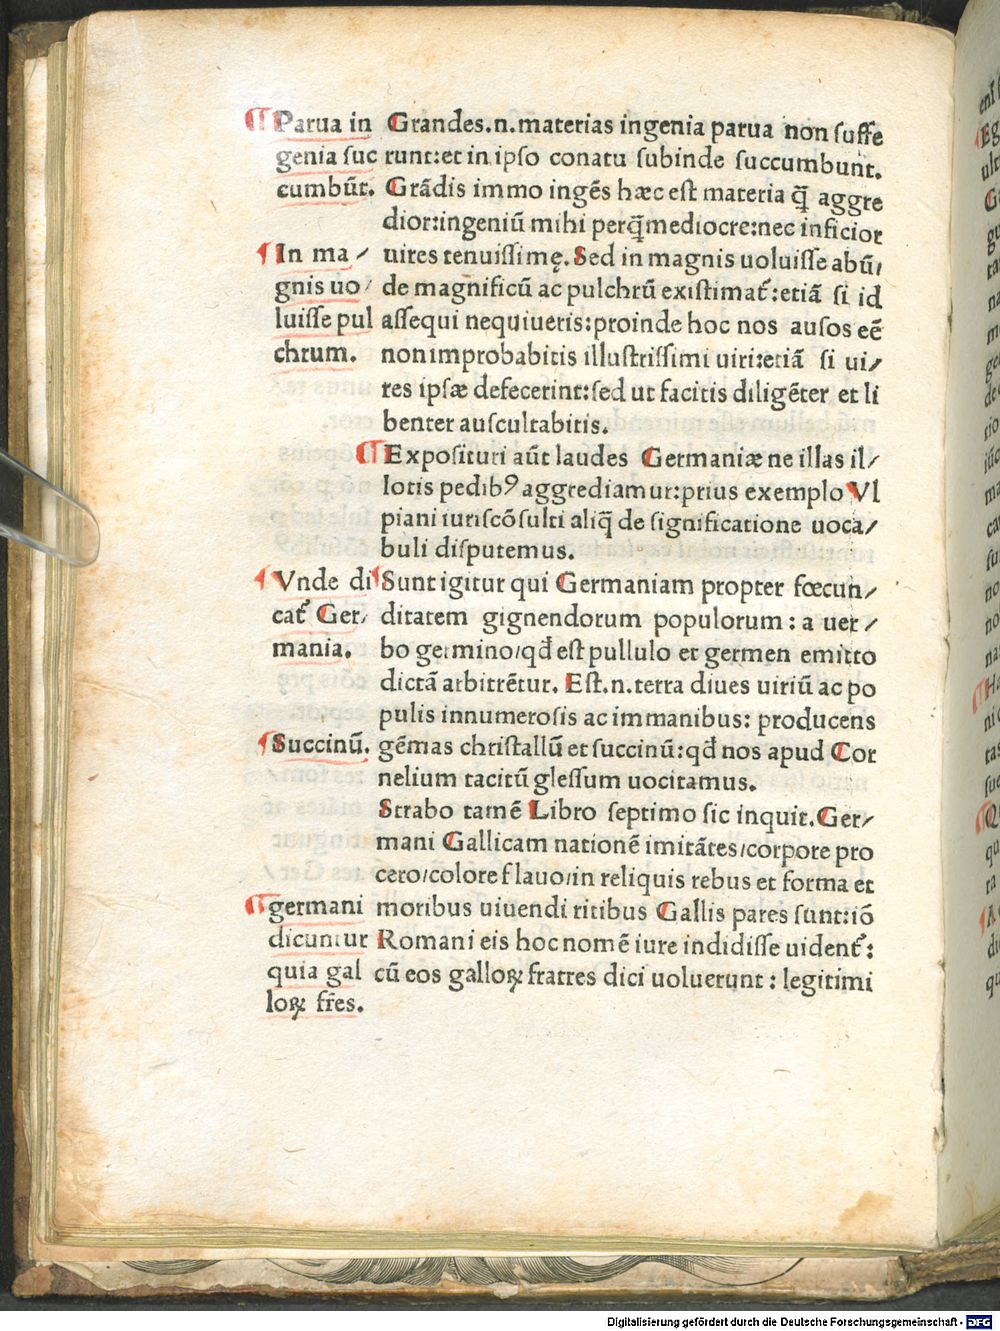 ¶ Parua in
genia suc
cumbūt.
Grandes.n.materias ingenia parua non suffe
runt:et in ipso conatu subinde succumbunt.
Grādis immo ingēs hæc est materia q̄ aggre
dior:ingeniū mihi perq̄mediocre:nec inficior
¶ In ma/
gnis uo/
luisse pul
chrum.
uires tenuissimę. Sed in magnis uoluisse abū/
de magnificū ac pulchrū existimat᷑:etiā si id
assequi nequiueris:proinde hoc nos ausos eē
non improbabitis illustrissimi uiri:etiā si ui/
res ipsæ defecerint:sed ut facitis diligēter et li
benter auscultabitis.
¶ Exposituri aūt laudes Germaniæ ne illas il/
lotis pedibꝰ aggrediamur:prius exemplo Vl
piani iuriscōsulti aliq̄ de significatione uoca/
buli disputemus.
¶ Vnde di
cat᷑ Ger/
mania.
¶ Sunt igitur qui Germaniam propter fœcun/
ditatem gignendorum populorum: a uer/
bo germino/qđ est pullulo et germen emitto
dictā arbitrētur. Est.n.terra diues uiriū ac po
pulis innumerosis ac immanibus: producens
¶ Succinū.
gēmas christallū et succinū:qđ nos apud Cor
nelium tacitū glessum uocitamus.
Strabo tamē Libro septimo sic inquit. Ger/
mani Gallicam nationē imitātes/corpore pro
cero/colore flauo/in reliquis rebus et forma et
¶ germani
dicuntur
quia gal
loꝝ fr̄es.
moribus uiuendi ritibus Gallis pares sunt:iō
Romani eis hoc nomē iure indidisse uident᷑:
cū eos galloꝝ fratres dici uoluerunt: legitimi
Digitalisierung gefördert durch die Deutsche Forschungsgemeinschaft - DFG